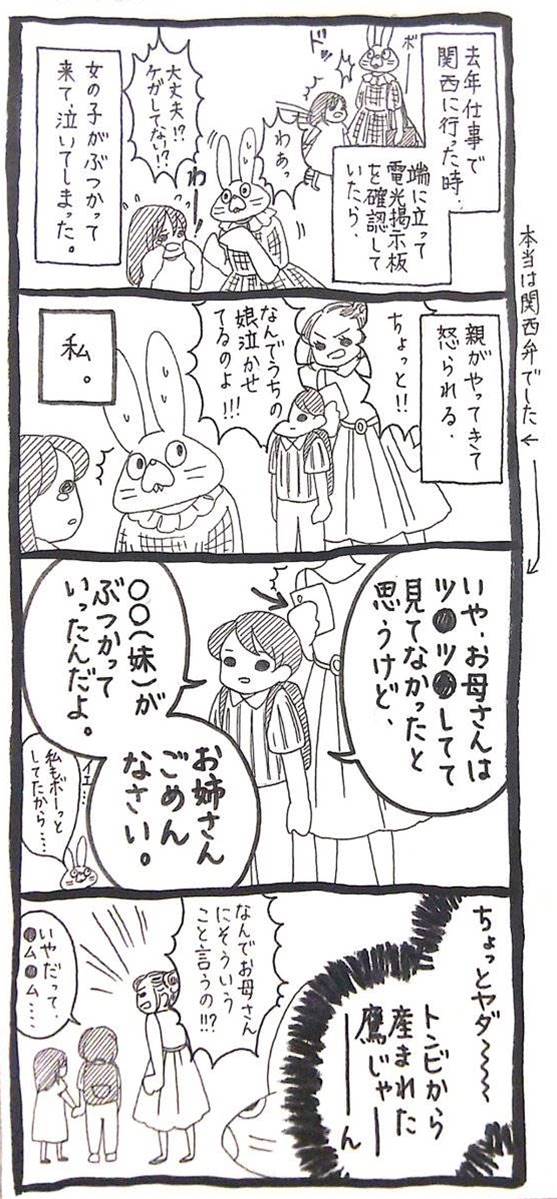 去年仕事で
関西に行った時、
端に立って
電光掲示板
を確認して
いたら、
ボー
ドッ
わぁっ
大丈夫!?
ケガしてない!?
わー
女の子がぶつかって
来て、泣いてしまった。
本当は関西弁でした
親がやってきて
怒られる。
ちょっと!!
なんでうちの
娘泣かせ
てるのよ!!!
私。
いや、お母さんは
ツ●ツ●してて
見てなかったと
思うけど、
〇〇(妹)が
ぶつかって
いったんだよ。
お姉さん
ごめん
なさい。
イエ…
私もボーっと
してたから……
ちょっとヤダ〜〜〜
トンビから
産まれた
鷹じゃーーん
なんでお母さん
にそういう
こと言うの!!?
いやだって、
●ム●ム……